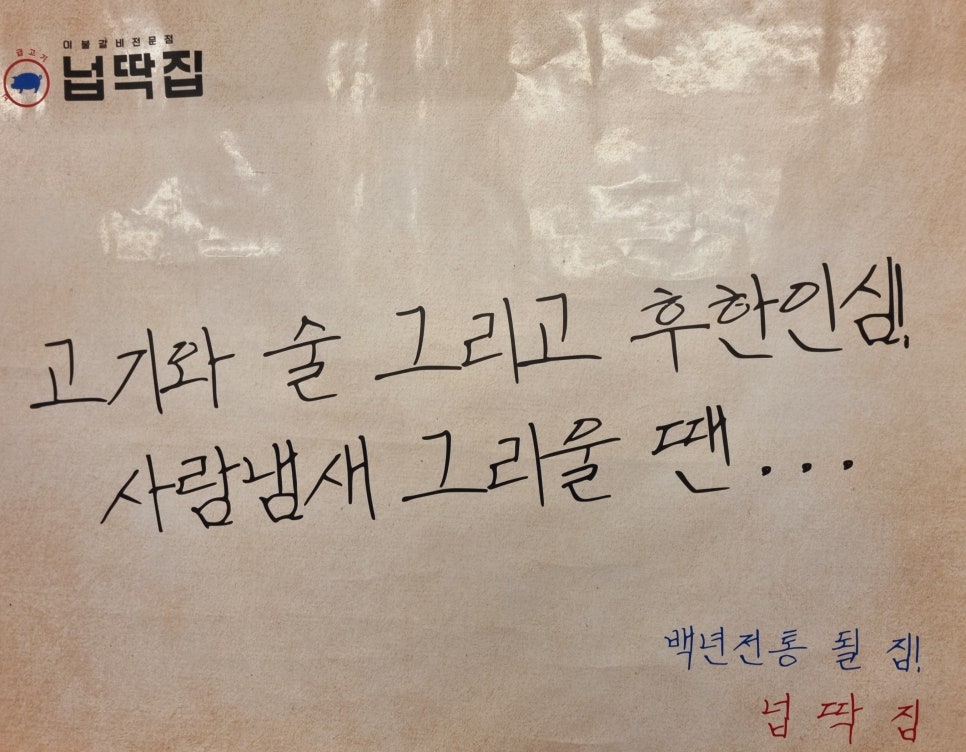 이불갈비전문점
넙딱집
고기와 술 그리고 후한인심!
사람냄새 그리울 땐...
백년전통 될 집!
넙딱집